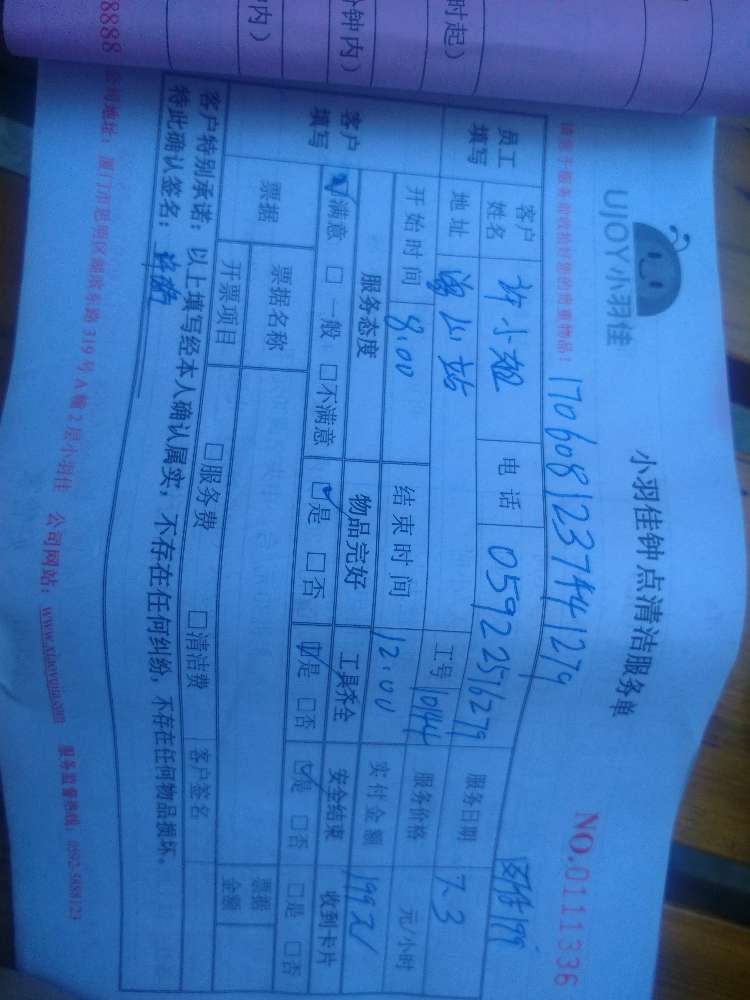 时起)
钟内)
内)
UJOY小羽佳
小羽佳钟点清洁服务单
NO.0111336
请您于服务前收拾好您的贵重物品!
1706081237441279
员工填写
客户姓名
许小姐
电话
05922516279
服务日期
7.3
地址
工号
10144
服务价格
元/小时
开始时间
8:00
结束时间
12:00
实付金额
199元
客户填写
服务态度
物品完好
工具齐全
安全结束
收到卡片
☑满意 □一般 □不满意
☑是 □否
☑是 □否
☑是 □否
□是 □否
票据
票据名称
票据金额
开票项目
□服务费
□清洁费
客户签名
客户特别承诺:以上填写经本人确认属实,不存在任何纠纷,不存在任何物品损坏。
特此确认签名:
8888
公司地址:厦门市思明区湖滨东路319号A幢2层小羽佳
公司网站:www.xiaoyujia.com
服务监督热线:0592-5888123